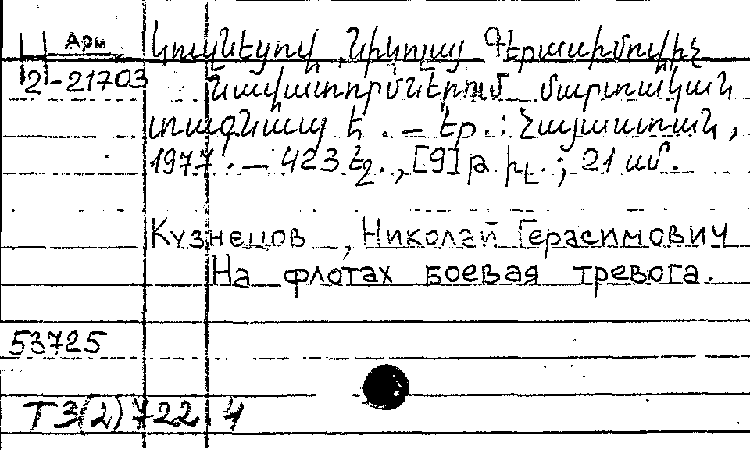 Арм
Կուզնեցով, Նիկոլայ Գերասիմովիչ
2-21703 Նավատորմներում մարտական
տագնապ է. – Եր.: Հայաստան,
1977. – 423 էջ., [9] թ. իլ.; 21 սմ.
Кузнецов, Николай Герасимович
На флотах боевая тревога.
53725
Т3(2)722.4